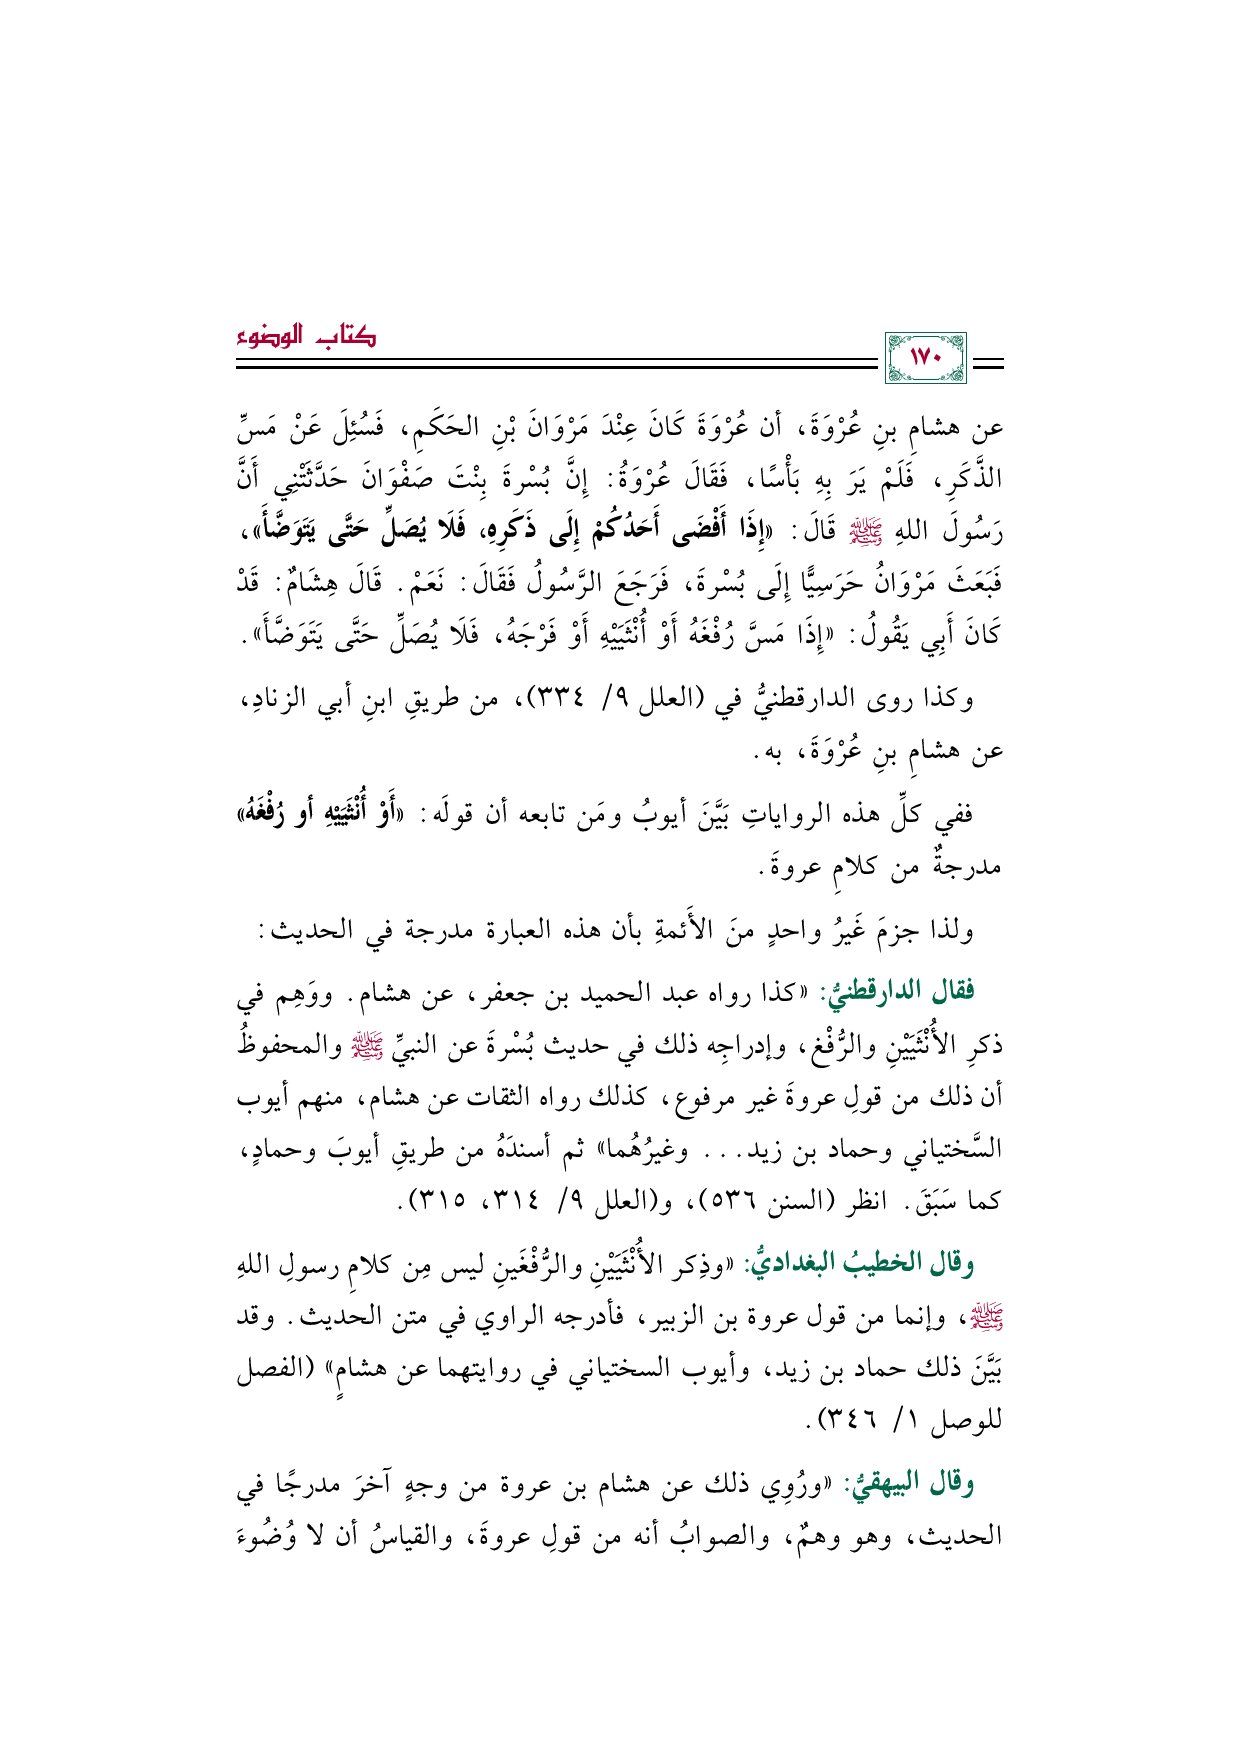 كتاب الوضوء
١٧٠
عن هشامِ بنِ عُرْوَةَ، أن عُرْوَةَ كَانَ عِنْدَ مَرْوَانَ بْنِ الحَكَمِ، فَسُئِلَ عَنْ مَسِّ
الذَّكَرِ، فَلَمْ يَرَ بِهِ بَأْسًا، فَقَالَ عُرْوَةُ: إِنَّ بُسْرةَ بِنْتَ صَفْوَانَ حَدَّثَتْنِي أَنَّ
رَسُولَ اللهِ ﷺ قَالَ: «إِذَا أَفْضَى أَحَدُكُمْ إِلَى ذَكَرِهِ، فَلَا يُصَلِّ حَتَّى يَتَوَضَّأَ»،
فَبَعَثَ مَرْوَانُ حَرَسِيًّا إِلَى بُسْرةَ، فَرَجَعَ الرَّسُولُ فَقَالَ: نَعَمْ. قَالَ هِشَامٌ: قَدْ
كَانَ أَبِي يَقُولُ: «إِذَا مَسَّ رُفْغَهُ أَوْ أُنْثَيَيْهِ أَوْ فَرْجَهُ، فَلَا يُصَلِّ حَتَّى يَتَوَضَّأَ».
وكذا روى الدارقطنيُّ في (العلل ٩/ ٣٣٤)، من طريقِ ابنِ أبي الزنادِ،
عن هشامِ بنِ عُرْوَةَ، به.
ففي كلِّ هذه الرواياتِ بَيَّنَ أيوبُ ومَن تابعه أن قولَه: «أَوْ أُنْثَيَيْهِ أو رُفْغَهُ»
مدرجةٌ من كلامِ عروةَ.
ولذا جزمَ غَيرُ واحدٍ منَ الأَئمةِ بأن هذه العبارة مدرجة في الحديث:
فقال الدارقطنيُّ: «كذا رواه عبد الحميد بن جعفر، عن هشام. ووَهِم في
ذكرِ الأُنْثَيَيْنِ والرُّفْغ، وإدراجِه ذلك في حديث بُسْرةَ عن النبيِّ ﷺ والمحفوظُ
أن ذلك من قولِ عروةَ غير مرفوع، كذلك رواه الثقات عن هشام، منهم أيوب
السَّختياني وحماد بن زيد... وغيرُهُما» ثم أسندَهُ من طريقِ أيوبَ وحمادٍ،
كما سَبَقَ. انظر (السنن ٥٣٦)، و(العلل ٩/ ٣١٤، ٣١٥).
وقال الخطيبُ البغداديُّ: «وذِكر الأُنْثَيَيْنِ والرُّفْغَينِ ليس مِن كلامِ رسولِ اللهِ
ﷺ، وإنما من قول عروة بن الزبير، فأدرجه الراوي في متن الحديث. وقد
بَيَّنَ ذلك حماد بن زيد، وأيوب السختياني في روايتهما عن هشامٍ» (الفصل
للوصل ١/ ٣٤٦).
وقال البيهقيُّ: «ورُوِي ذلك عن هشام بن عروة من وجهٍ آخرَ مدرجًا في
الحديث، وهو وهمٌ، والصوابُ أنه من قولِ عروةَ، والقياسُ أن لا وُضُوءَ